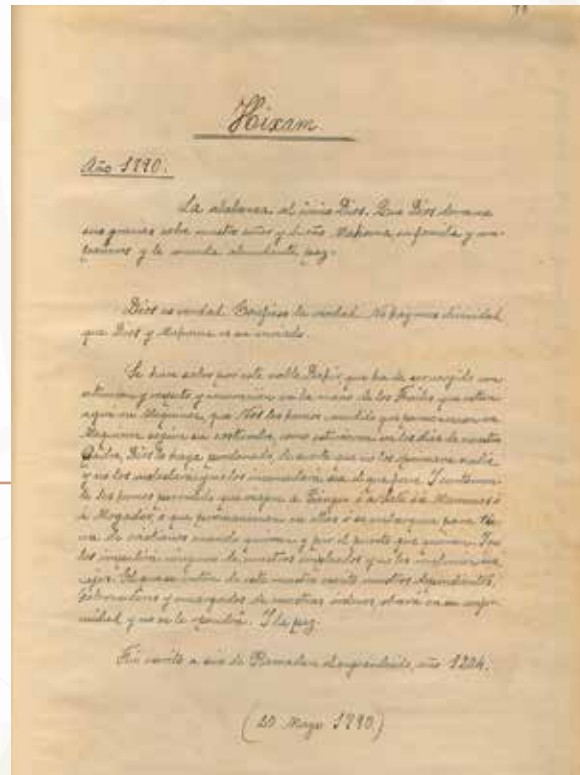 Hixam
Año 1790.
La alabanza al único Dios. Que Dios derrame
sus gracias sobre nuestro señor y dueño Mahoma, su familia y com-
pañeros y le conceda abundante paz.
Dios es verdad. Confieso la verdad. No hay mas divinidad
que Dios y Mahoma es su enviado.
Se hace saber por este noble que ha de ser cogido con
atencion y respeto y en la mano de los Frailes que estan
aqui en Mequinez, que Nos les hemos que permanezcan en
Mequinez segun su costumbre, como estuvieron en los dias de nuestro
Padre, Dios lo haya perdonado, de suerte que no los nadie
y no los moleste ni que los incomodara sea el que fuere. Y
le les hemos permitido que vayan a Tanger o a
á Mogador, o que permanezcan en ellos o se embarquen para tie-
rra de cristianos cuando quieran y por el puerto que quieran. No
les impedirá ninguno de nuestros empleados
El que se entere de este nuestro escrito nuestros dependientes,
Gobernadores y encargados de nuestras órdenes, obrará en su confor-
midad y no se le Y la paz.
Fué escrito a seis de Ramadan el engrandecido, año 1204.
(20 Mayo 1790)